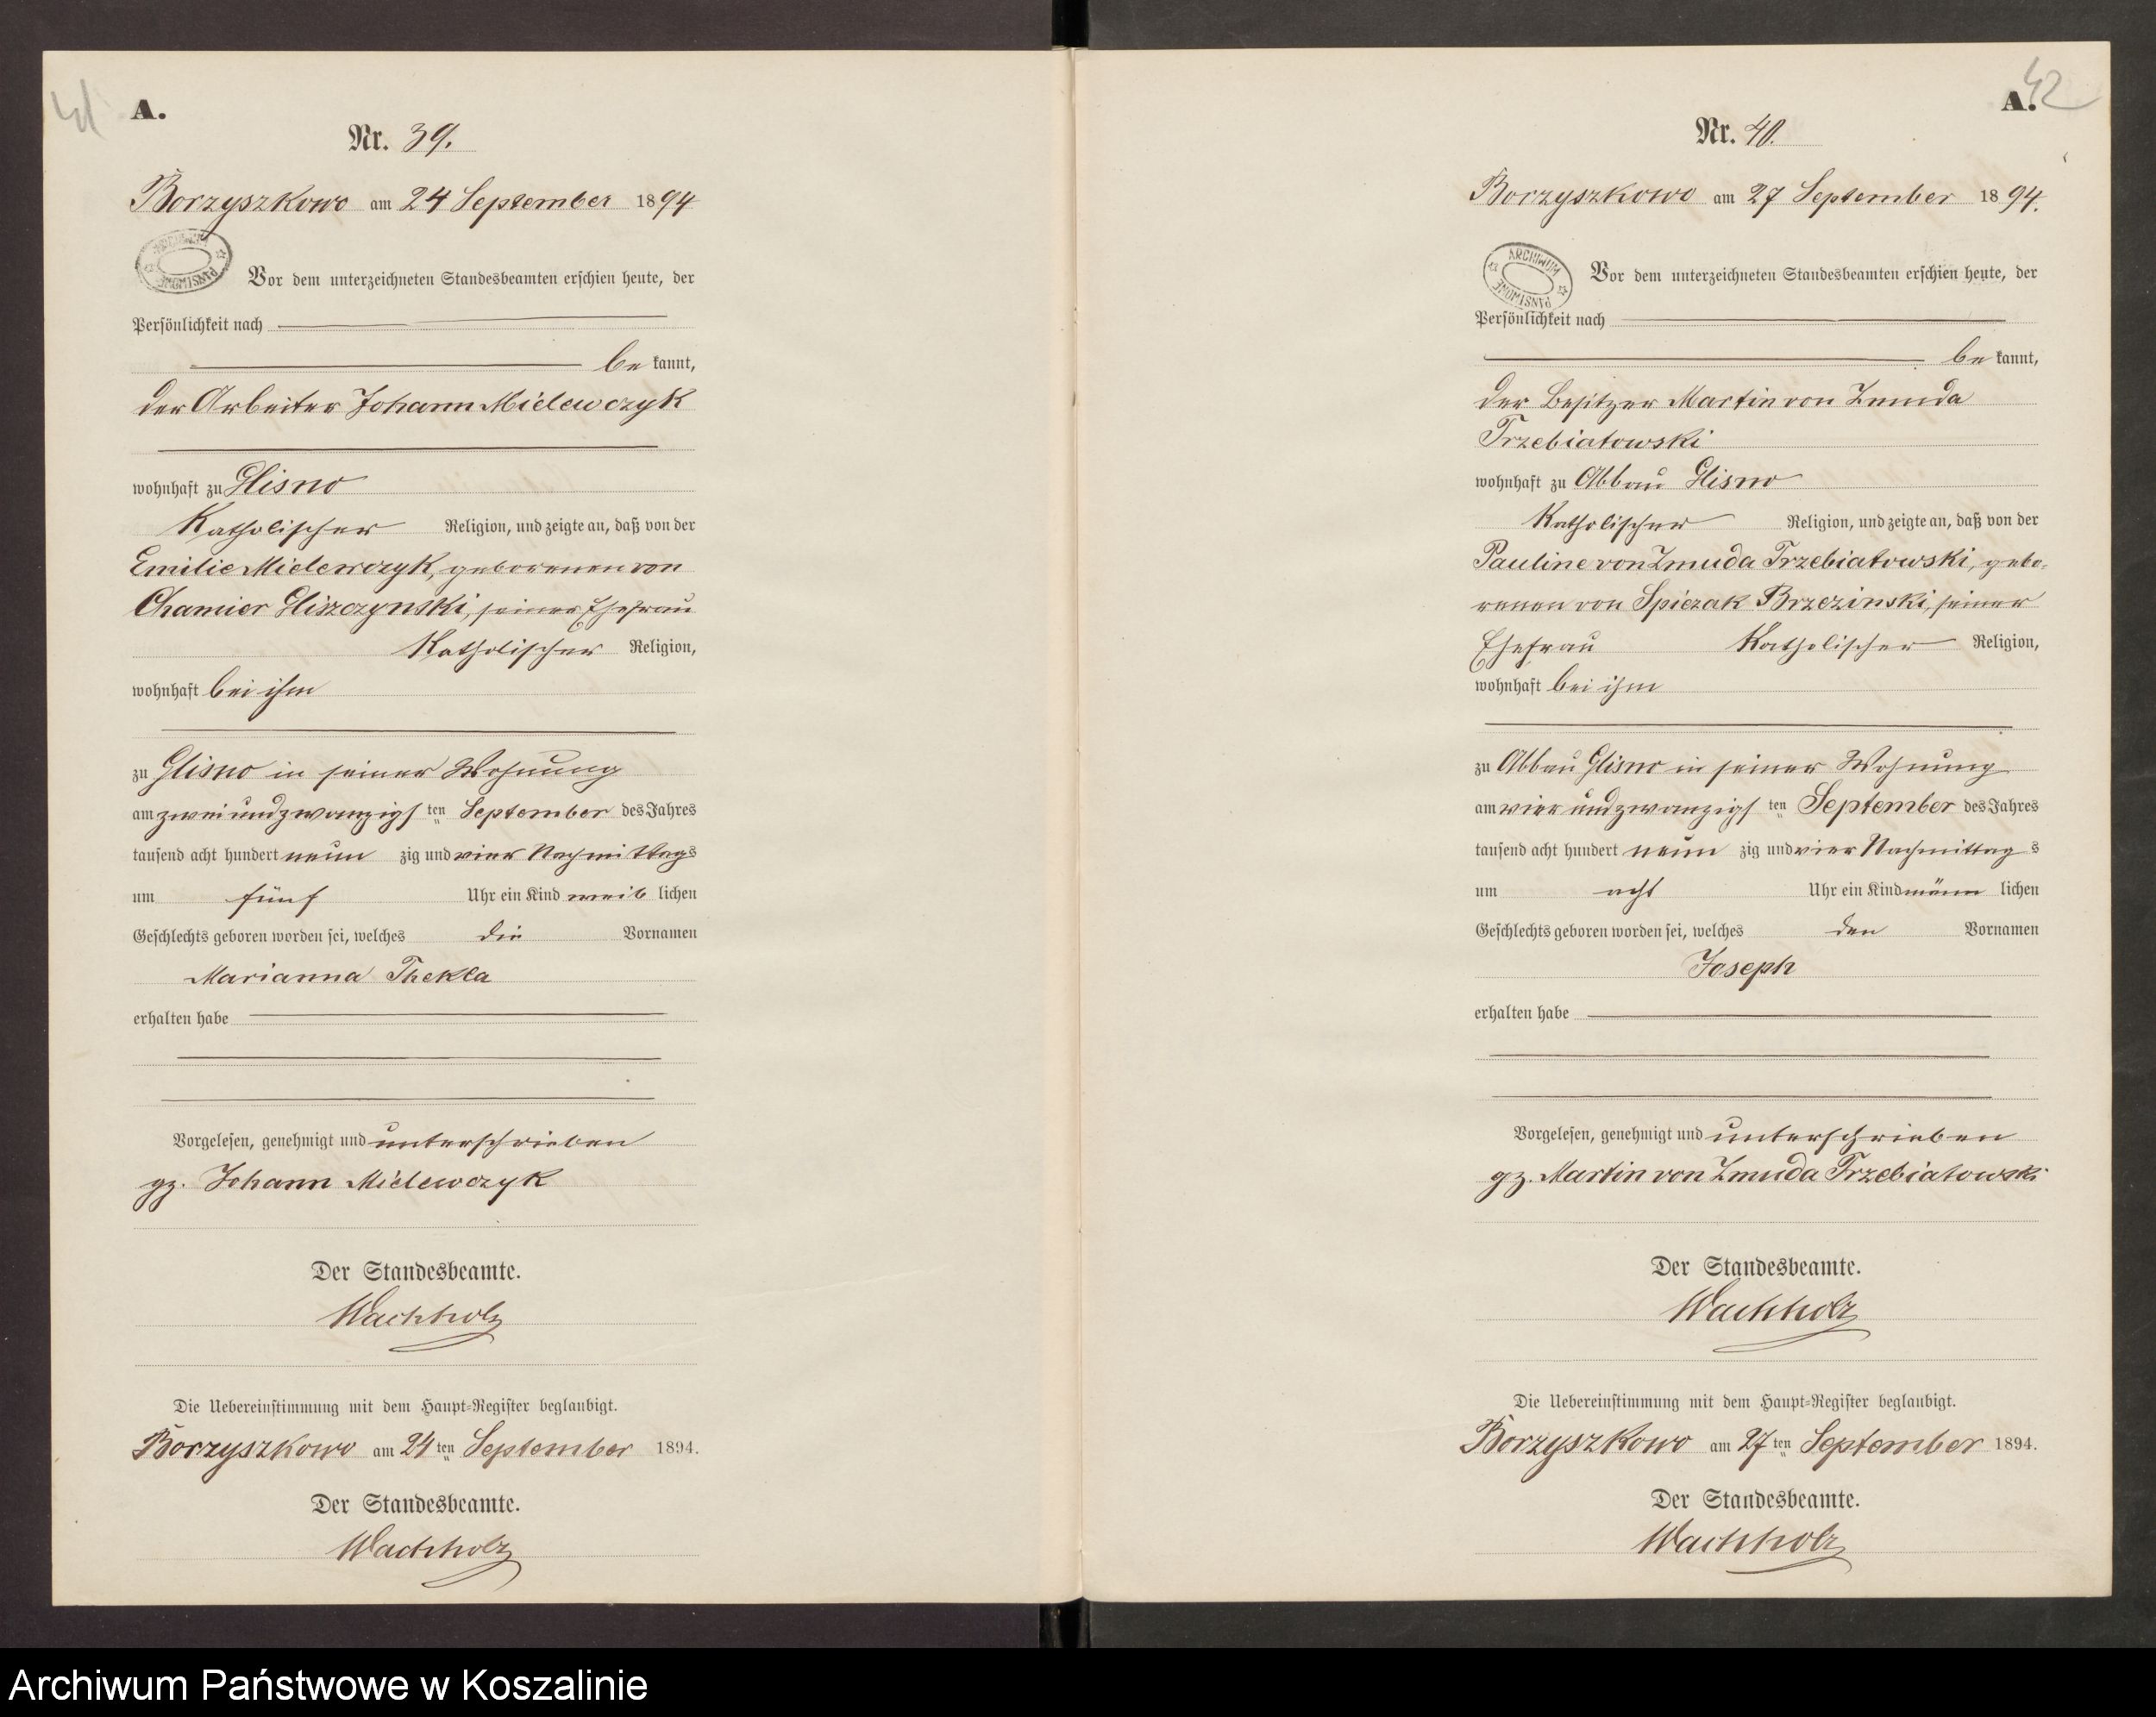 41
A.
Nr. 39.
Borzyszkowo am 24 September 1894
ARCHIWUM PAŃSTWOWE
Vor dem unterzeichneten Standesbeamten erschien heute, der
Persönlichkeit nach
be kannt,
der Arbeiter Johann Mielewczyk
wohnhaft zu Glisno
Katholischer Religion, und zeigte an, daß von der
Emilie Mielewczyk, geborenen von
Chamier Gliszczynski, seiner Ehefrau
Katholischer Religion,
wohnhaft bei ihm
zu Glisno in seiner Wohnung
am zweiundzwanzigs ten September des Jahres
tausend acht hundert neun zig und vier Nachmittags
um fünf Uhr ein Kind weib lichen
Geschlechts geboren worden sei, welches die Vornamen
Marianna Thekla
erhalten habe
Vorgelesen, genehmigt und unterschrieben
gz. Johann Mielewczyk
Der Standesbeamte.
Wachholz
Die Uebereinstimmung mit dem Haupt-Register beglaubigt.
Borzyszkowo am 24 ten September 1894.
Der Standesbeamte.
Wachholz
42
A.
Nr. 40.
Borzyszkowo am 27 September 1894.
ARCHIWUM PAŃSTWOWE
Vor dem unterzeichneten Standesbeamten erschien heute, der
Persönlichkeit nach
be kannt,
der Besitzer Martin von Zmuda
Trzebiatowski
wohnhaft zu Abbau Glisno
Katholischer Religion, und zeigte an, daß von der
Pauline von Zmuda Trzebiatowski, gebo-
renen von Spiczak Brzezinski, seiner
Ehefrau Katholischer Religion,
wohnhaft bei ihm
zu Abbau Glisno in seiner Wohnung
am vierundzwanzigs ten September des Jahres
tausend acht hundert neun zig und vier Nachmittag s
um acht Uhr ein Kind männ lichen
Geschlechts geboren worden sei, welches den Vornamen
Joseph
erhalten habe
Vorgelesen, genehmigt und unterschrieben
gz. Martin von Zmuda Trzebiatowski
Der Standesbeamte.
Wachholz
Die Uebereinstimmung mit dem Haupt-Register beglaubigt.
Borzyszkowo am 27 ten September 1894.
Der Standesbeamte.
Wachholz
Archiwum Państwowe w Koszalinie